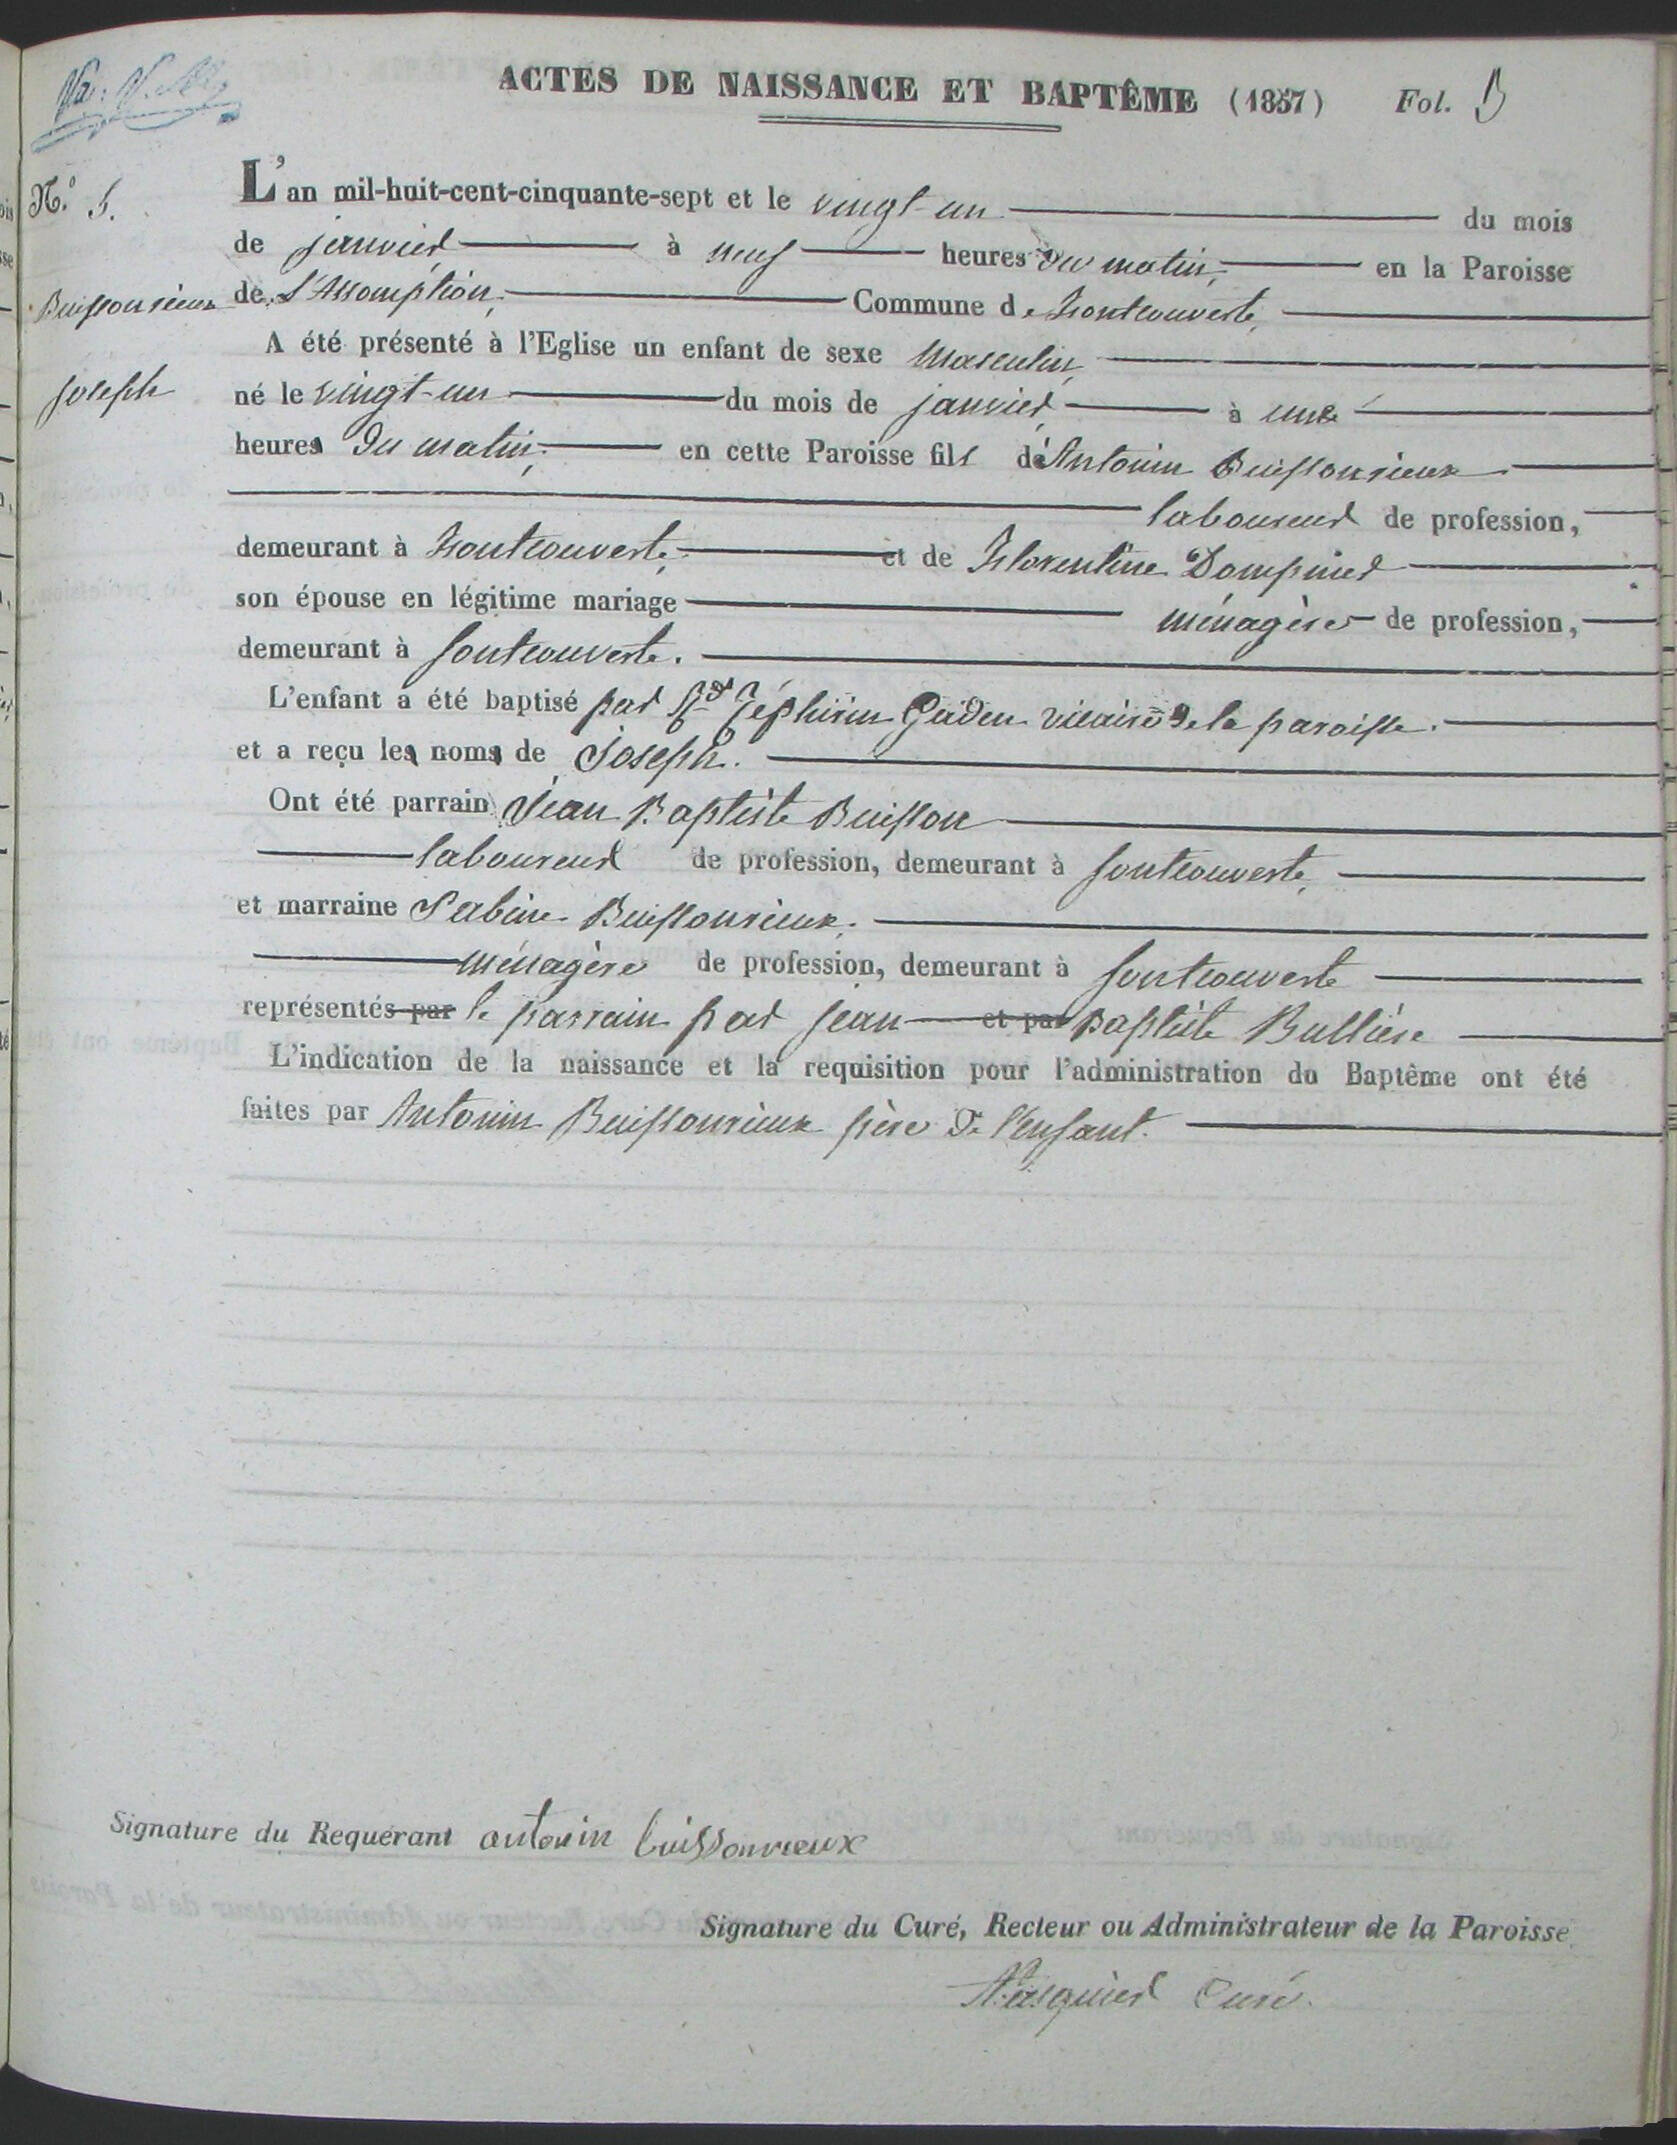 ACTES DE NAISSANCE ET BAPTÊME (1857) Fol. 3
N.º 5.
L'an mil-huit-cent-cinquante-sept et le vingt-un du mois
de janvier à neuf heures du matin, en la Paroisse
Buissonrieux
de l'Assomption, Commune de Fontcouverte,
A été présenté à l'Eglise un enfant de sexe Masculin,
Joseph
né le vingt-un du mois de janvier, à une
heures du matin, en cette Paroisse fils d'Antonin Buissonrieux
laboureur de profession,
demeurant à Fontcouverte, et de Florentine Dompnier
son épouse en légitime mariage ménagère de profession,
demeurant à fontcouverte.
L'enfant a été baptisé par Rd Zéphirin Gaden vicaire de la paroisse.
et a reçu les noms de Joseph.
Ont été parrain Jean Baptiste Buisson
laboureur de profession, demeurant à fontcouverte,
et marraine Sabine Buissonrieux.
ménagère de profession, demeurant à fontcouverte
représentés par le parrain par jean et par Baptiste Bullière
L'indication de la naissance et la requisition pour l'administration du Baptême ont été
faites par Antonin Buissonrieux père de l'enfant.
Signature du Requérant antonin buissonrieux
Signature du Curé, Recteur ou Administrateur de la Paroisse
Curé.